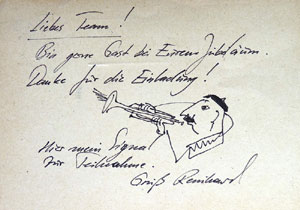 Liebes Team!
Bin gerne Gast bei Eurem Jubiläum.
Danke für die Einladung!
Hier mein Signal
zur Teilnahme.
Gruß Reinhard